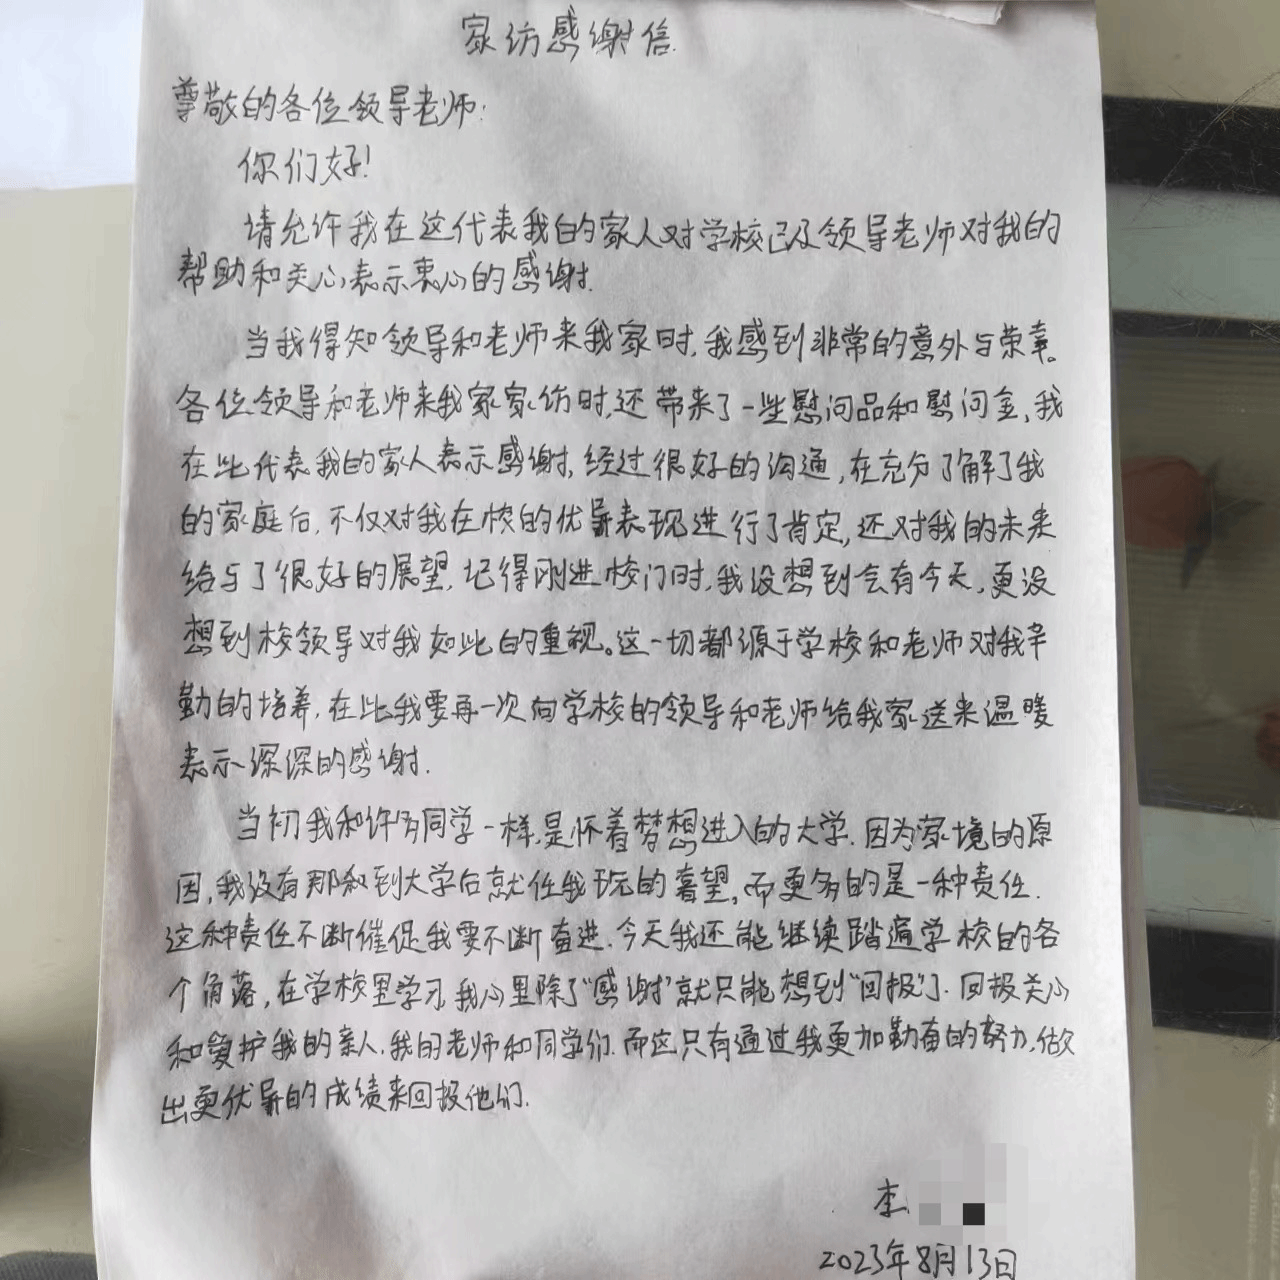 家访感谢信
尊敬的各位领导老师:
你们好!
请允许我在这代表我的家人对学校已及领导老师对我的
帮助和关心,表示衷心的感谢.
当我得知领导和老师来我家时,我感到非常的意外与荣幸。
各位领导和老师来我家家访时,还带来了一些慰问品和慰问金,我
在此代表我的家人表示感谢,经过很好的沟通,在充分了解了我
的家庭后,不仅对我在校的优异表现进行了肯定,还对我的未来
给与了很好的展望,记得刚进校门时,我没想到会有今天,更没
想到校领导对我如此的重视。这一切都源于学校和老师对我辛
勤的培养,在此我要再一次向学校的领导和老师给我家送来温暖
表示深深的感谢.
当初我和许多同学一样,是怀着梦想进入的大学.因为家境的原
因,我没有那般到大学后就任我玩的喜望,而更多的是一种责任.
这种责任不断催促我要不断奋进.今天我还能继续踏遍学校的各
个角落,在学校里学习,我心里除了“感谢”就只能想到“回报”了.回报关心
和爱护我的亲人,我的老师和同学们.而这只有通过我更加勤奋的努力,做
出更优异的成绩来回报他们.
李
2023年8月13日